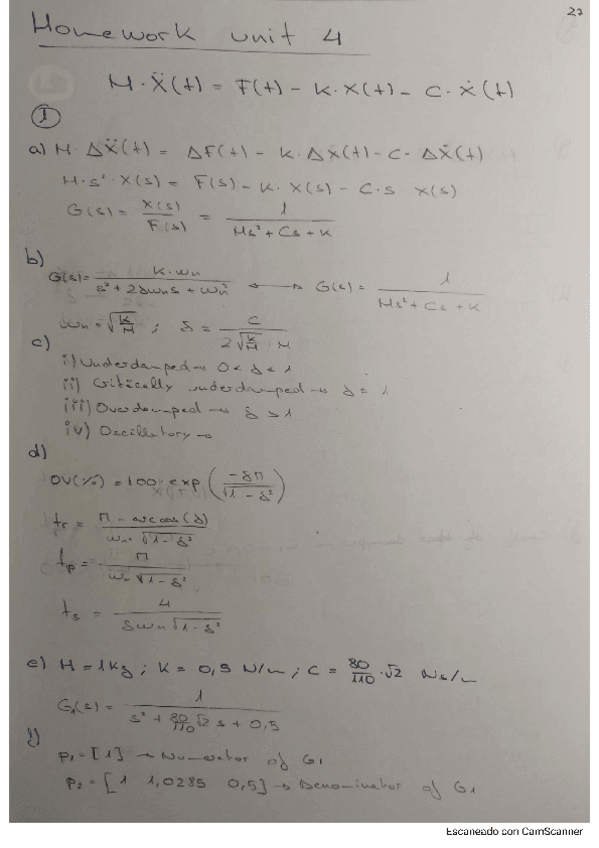 27
Homework unit 4
M·Ẍ(t) = F(t) - K·X(t) - C·Ẋ(t)
①
a) M·ΔẌ(t) = ΔF(t) - K·ΔX(t) - C·ΔẊ(t)
M·s²·X(s) = F(s) - K·X(s) - C·s X(s)
G(s) = X(s)/F(s) = 1/(Ms² + Cs + K)
b)
G(s) = K·ωn/(s² + 2δωns + ωn²) ⟷ G(s) = 1/(Ms² + Cs + K)
ωn = √(K/M) ; δ = C/(2√(K/M) M)
c)
i) Underdamped → 0 < δ < 1
ii) Critically underdamped → δ = 1
iii) Overdamped → δ > 1
iv) Oscillatory →
d)
OV(%) = 100·exp(-δπ/√(1-δ²))
tr = (π - arccos(δ))/(ωn·√(1-δ²))
tp = π/(ωn √(1-δ²))
ts = 4/(δωn √(1-δ²))
e) M = 1Kg ; K = 0,5 N/m ; C = 80/110·√2 Ns/m
G₁(s) = 1/(s² + 80/110 √2 s + 0,5)
p₁ = [1] → Numerator of G1
p₂ = [1 1,0285 0,5] → Denominator of G1
Escaneado con CamScanner